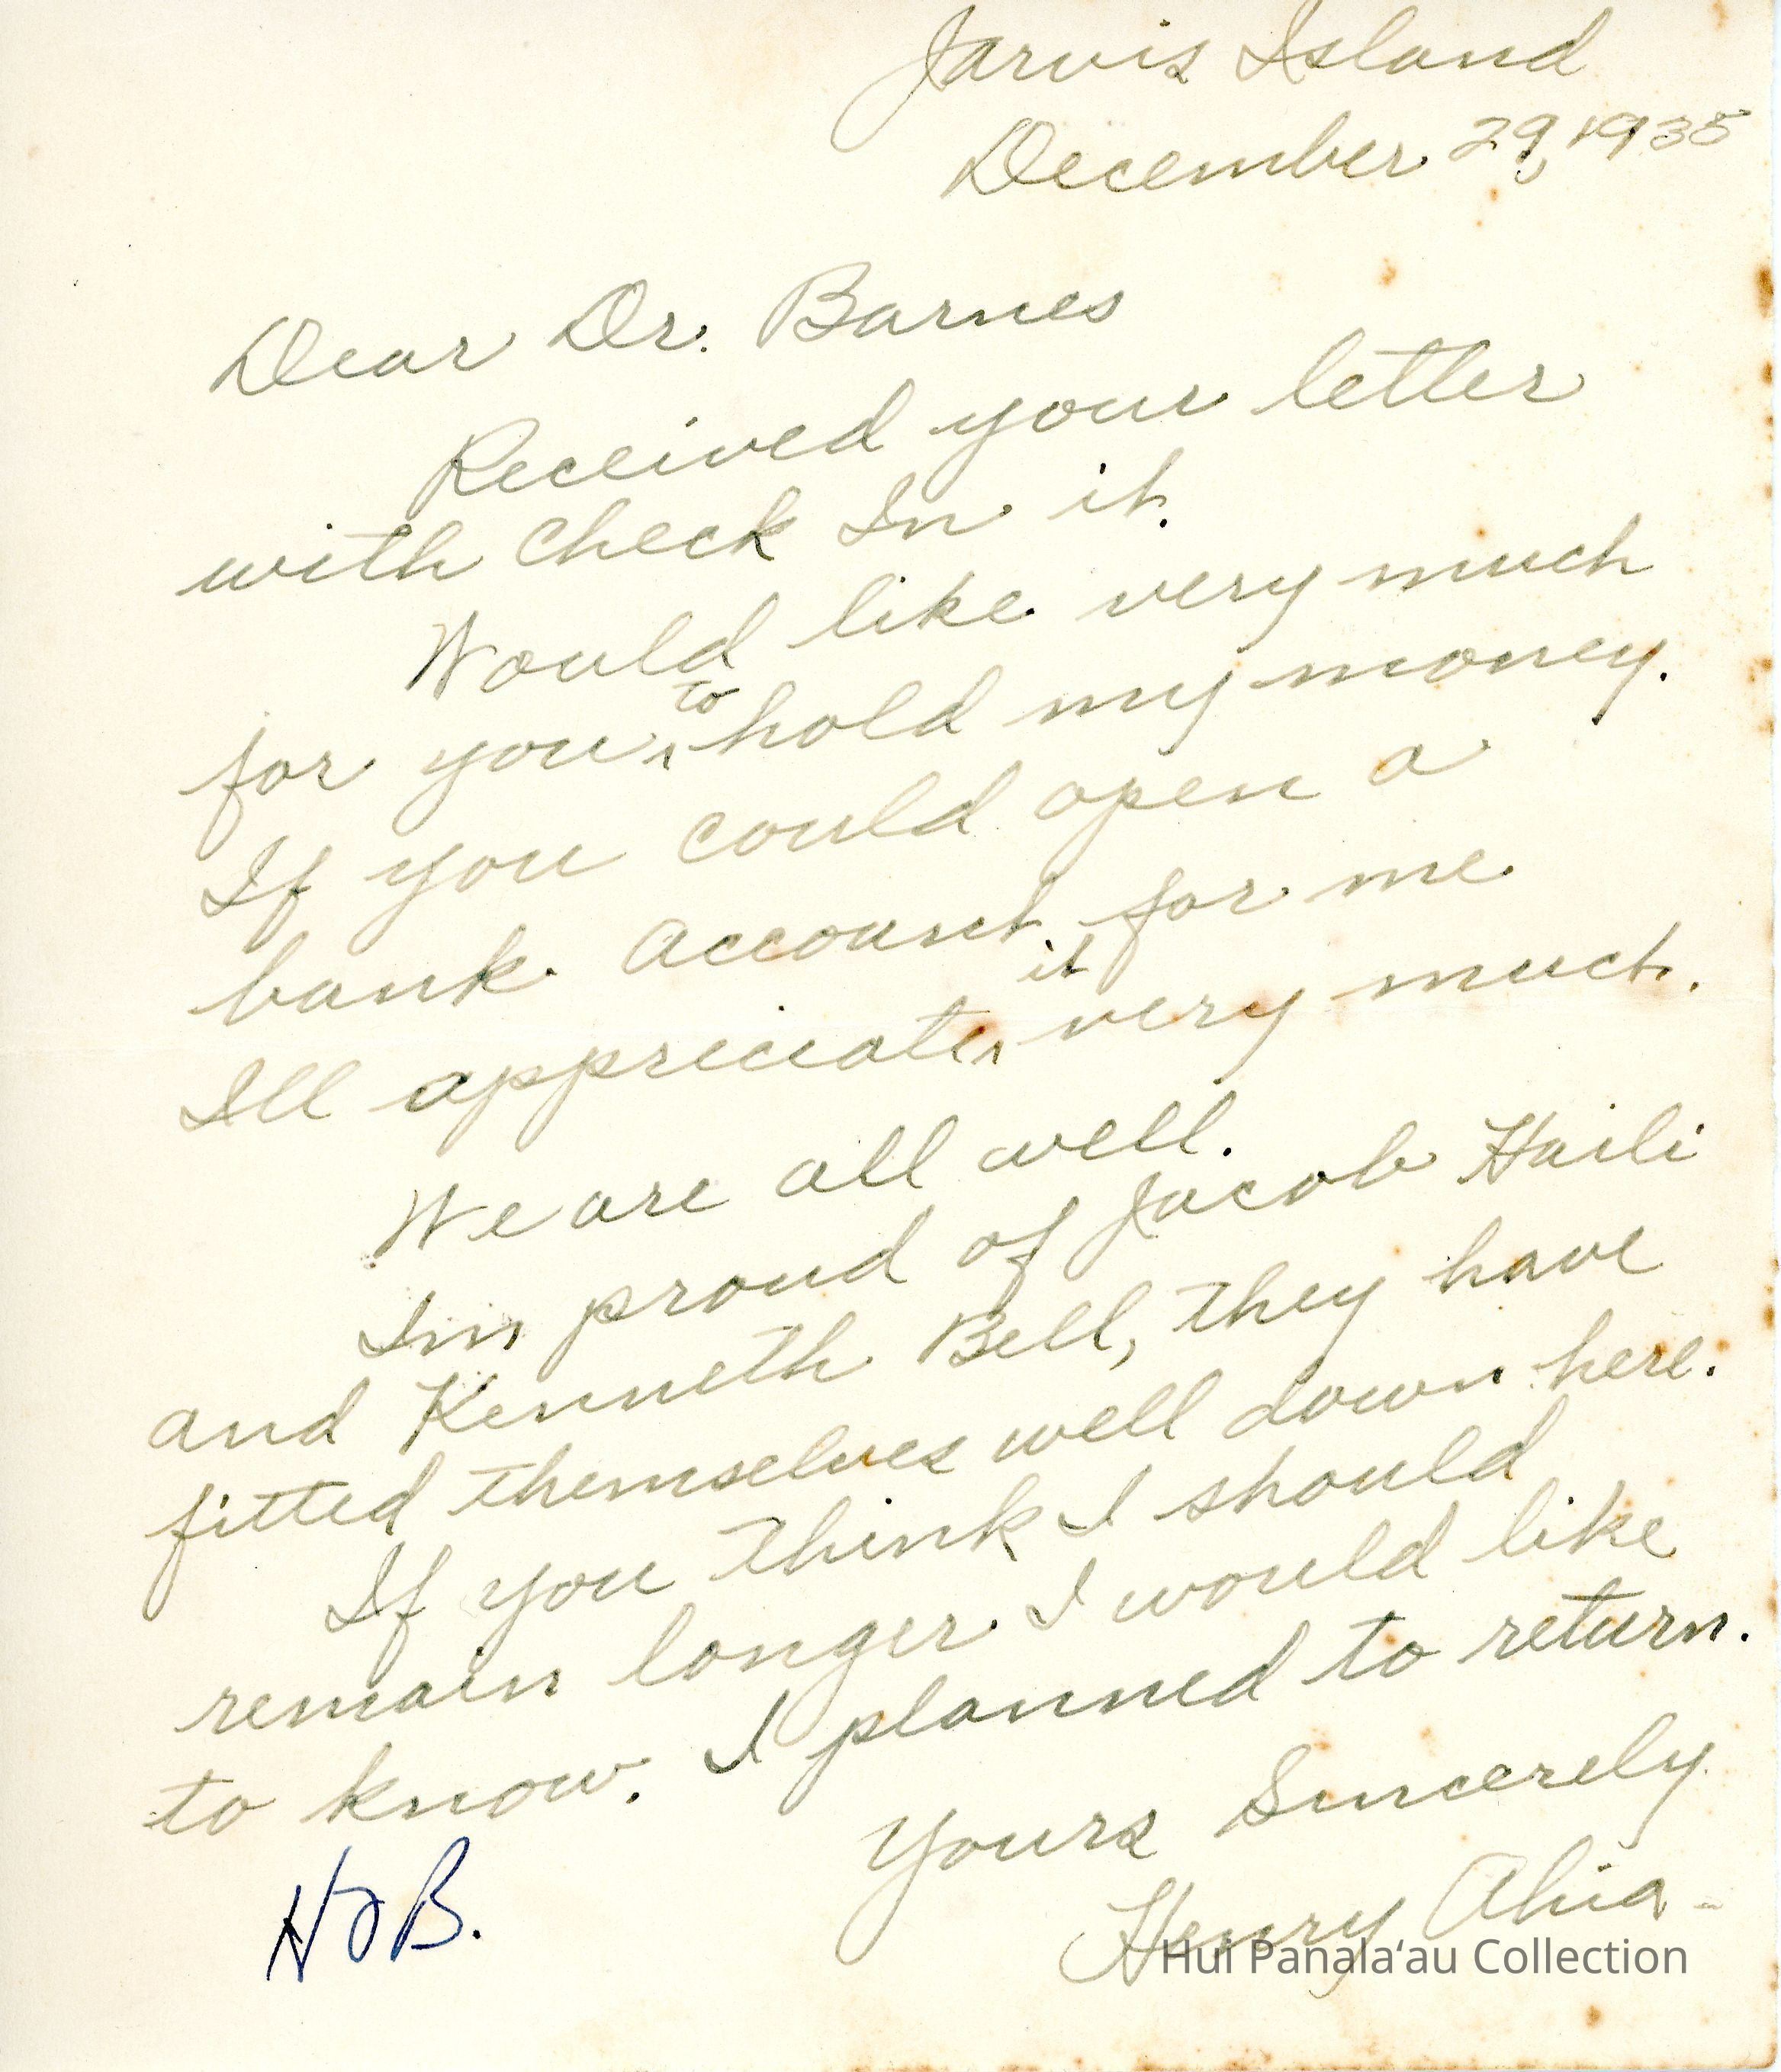 Jarvis Island
December 29, 1935
Dear Dr. Barnes
Received your letter
with Check In it.
Would like very much
for you to hold my money.
If you could open a
bank account for me
Ill appriciate it very much.
We are all well.
Im proud of Jacob Haili
and Kenneth Bell, they have
fitted themselves well down here.
If you think I should
remain longer I would like
to know. I planned to return.
Yours Sincerely
Henry Ahia
HJB.
Hui Panalaʻau Collection